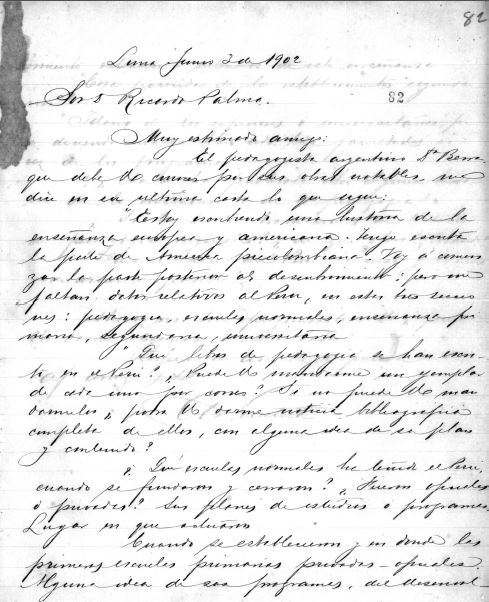 82
Lima Junio 3 de 1902
Sor D Ricardo Palma.
82
Muy estimado amigo:
El pedagogista argentino Dr Berra
que debe U conocer por sus obras notables, me
dice en su ultima carta lo que sigue:
"Estoy escribiendo una historia de la
enseñanza europea y americana. Tengo escrita
la parte de América precolombiana. Voy á comen
zar la parte posterior al descubrimiento: pero me
faltan datos relativos al Peru, en estas tres seccio
nes: pedagogia, escuelas normales, enseñanza pri
maria, segundaria, universitaria
"Qué libros de pedagogia se han escri-
to en el Peru? ¿Puede U mandarme un ejemplar
de cada uno por correo? Si no puede U man
darmelos, podra U darme noticia bibliografica
completa de ellos, con alguna idea de su plan
y contenido?
¿Qué escuelas normales ha tenido el Peru,
cuando se fundaron y cerraron? ¿Fueron oficiales
ó privadas? Sus planes de estudios o programas.
Lugar en que actuaron
Cuando se establecieron y en donde las
primeras escuelas primarias privadas-oficiales.
Alguna idea de sus programas, del desenvol-